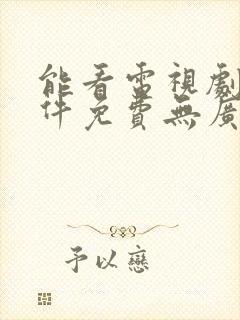 能看電視劇
件免費無廣
予以戀